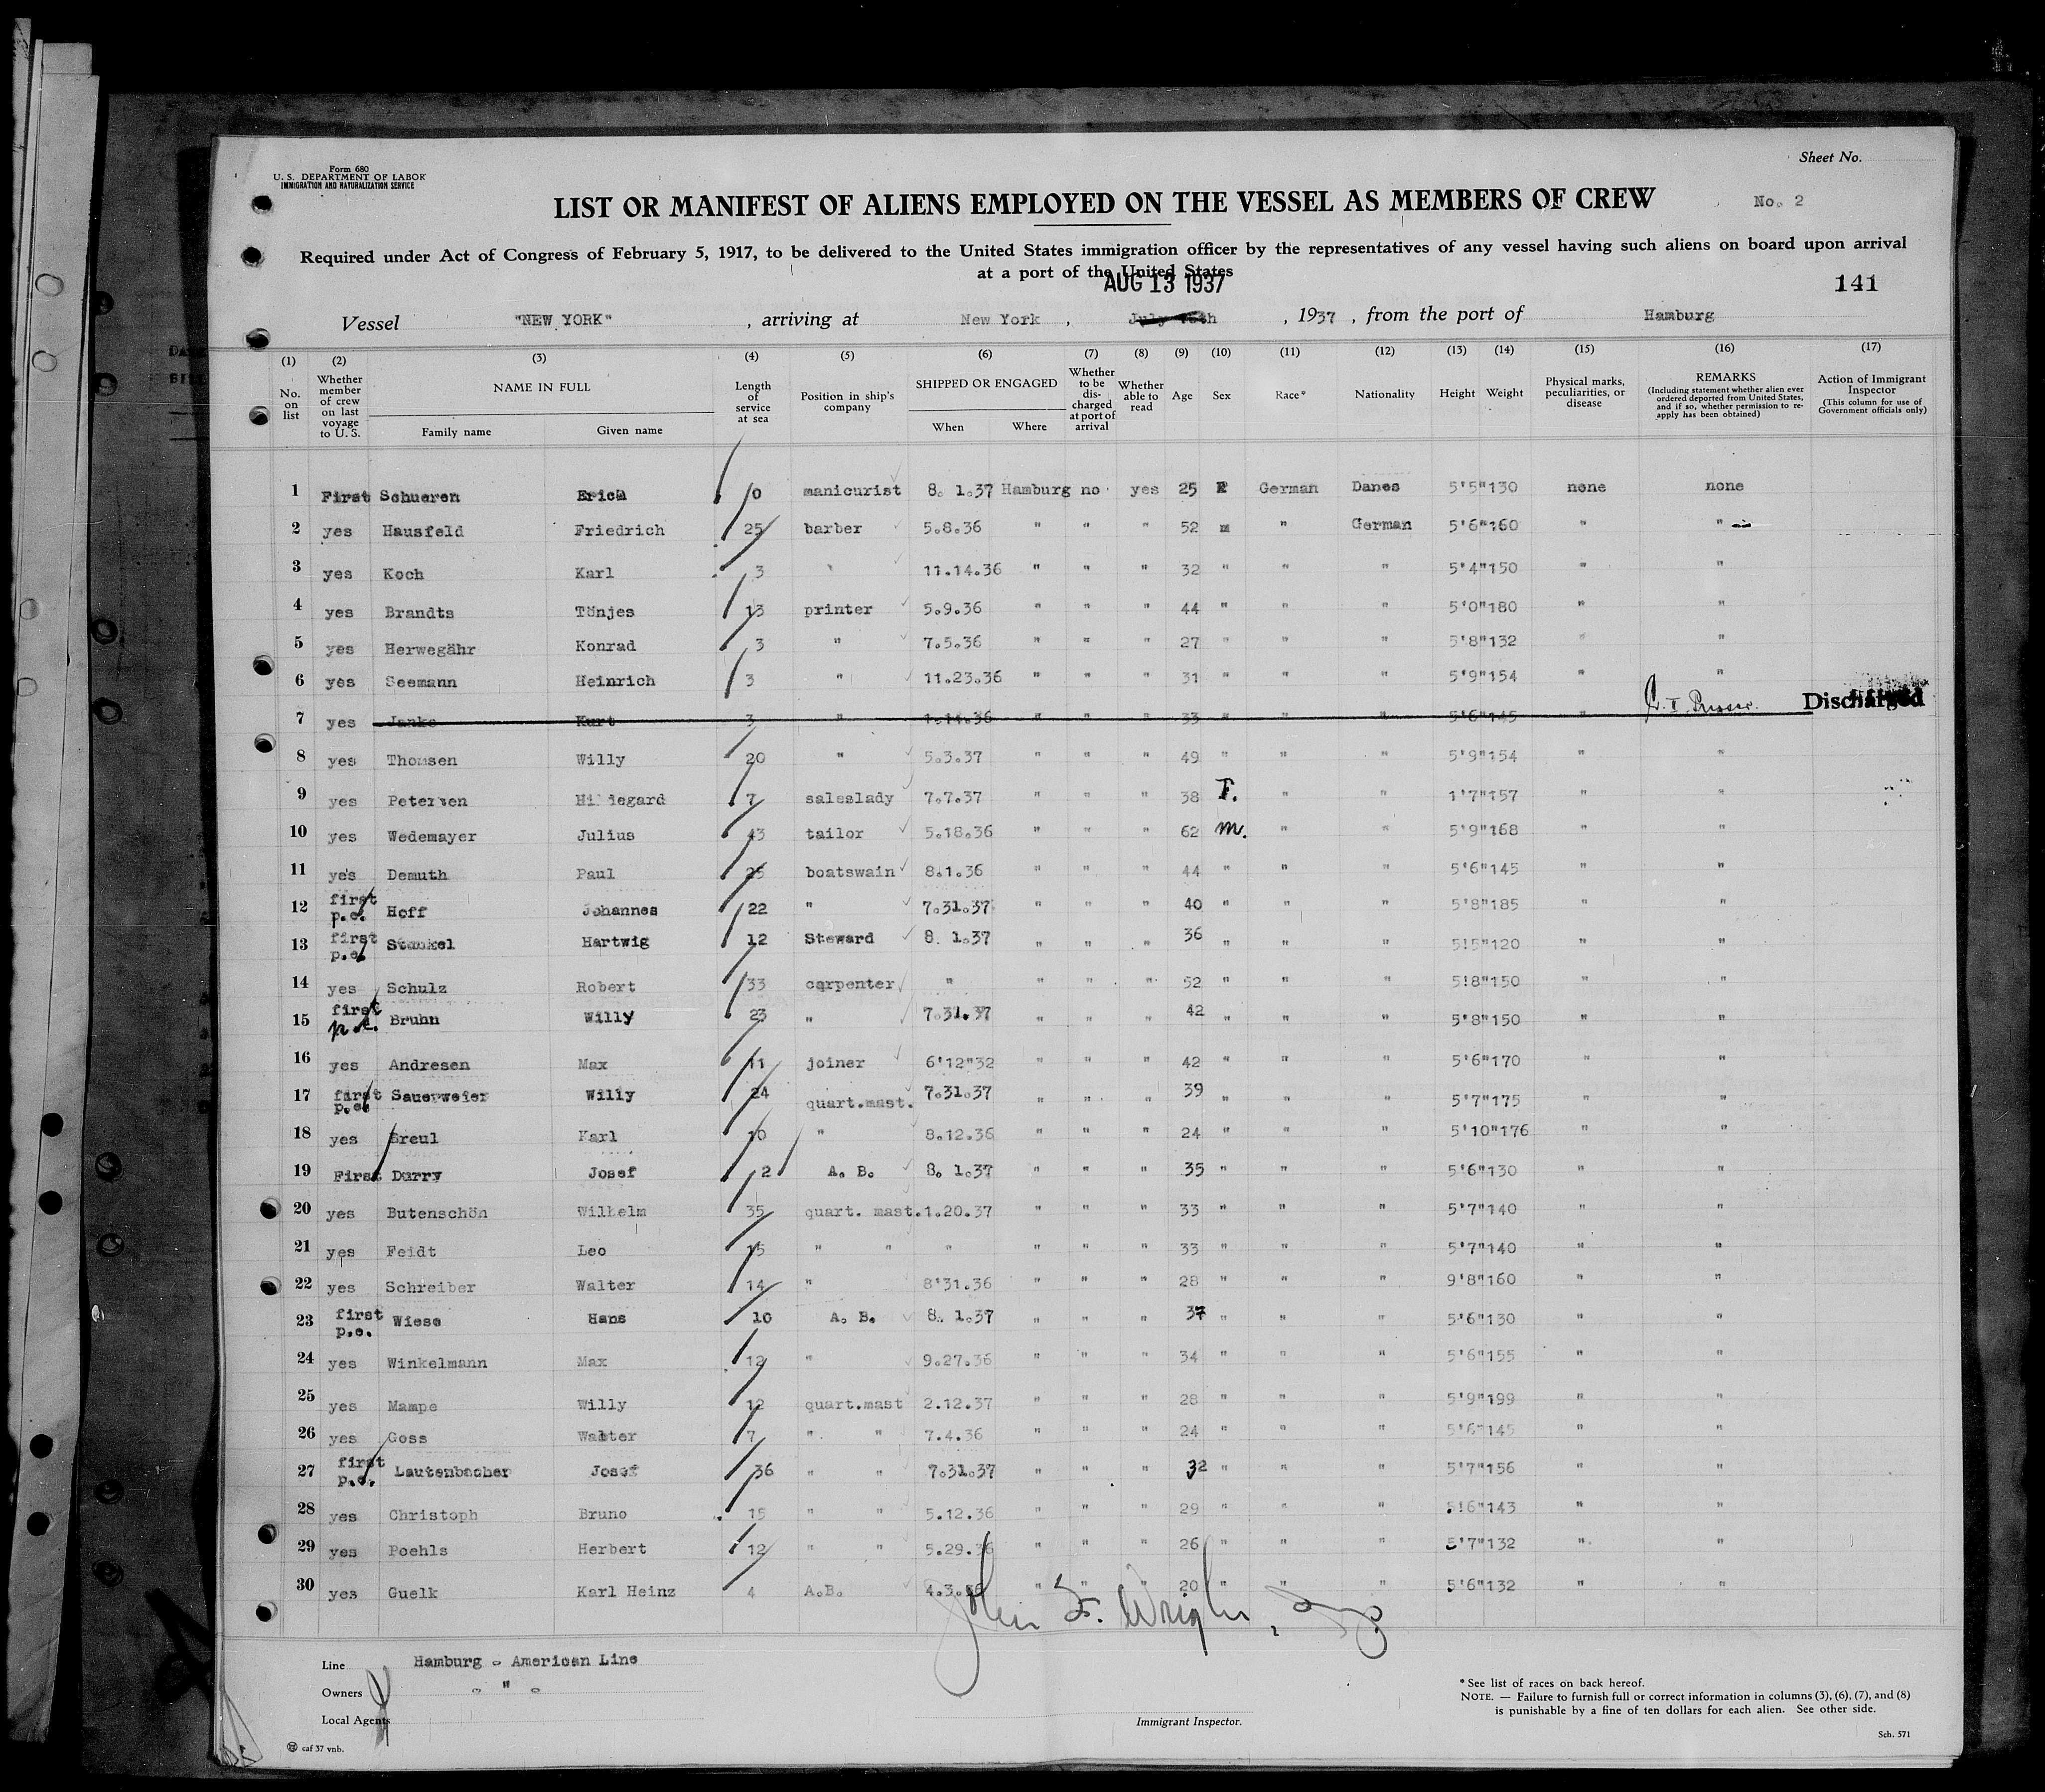 Form 680
U. S. DEPARTMENT OF LABOR
IMMIGRATION AND NATURALIZATION SERVICE
Sheet No.
LIST OR MANIFEST OF ALIENS EMPLOYED ON THE VESSEL AS MEMBERS OF CREW
No. 2
Required under Act of Congress of February 5, 1917, to be delivered to the United States immigration officer by the representatives of any vessel having such aliens on board upon arrival
at a port of the United States
AUG 13 1937
141
Vessel "NEW YORK" , arriving at New York , July , 1937 , from the port of Hamburg
(1) (2) (3) (4) (5) (6) (7) (8) (9) (10) (11) (12) (13) (14) (15) (16) (17)
No. on list
Whether member of crew on last voyage to U. S.
NAME IN FULL
Family name
Given name
Length of service at sea
Position in ship's company
SHIPPED OR ENGAGED
When
Where
Whether to be discharged at port of arrival
Whether able to read
Age
Sex
Race*
Nationality
Height
Weight
Physical marks, peculiarities, or disease
REMARKS
(Including statement whether alien ever ordered deported from United States, and if so, whether permission to reapply has been obtained)
Action of Immigrant Inspector
(This column for use of Government officials only)
1 First Schueren Erica 0 manicurist 8. 1.37 Hamburg no yes 25 German Danes 5'5" 130 none none
2 yes Hausfeld Friedrich 25 barber 5.8.36 " " " 52 m " German 5'6" 160 " "
3 yes Koch Karl 3 " 11.14.36 " " " 32 " " " 5'4" 150 " "
4 yes Brandts Tönjes 13 printer 5.9.36 " " " 44 " " " 5'0" 180 " "
5 yes Herwegähr Konrad 3 " 7.5.36 " " " 27 " " " 5'8" 132 " "
6 yes Seemann Heinrich 3 " 11.23.36 " " " 31 " " " 5'9" 154 " "
7 yes Janke Kurt 3 " 1.14.36 " " " 33 " " " 5'6" 145 " Discharged
8 yes Thomsen Willy 20 " 5.3.37 " " " 49 " " " 5'9" 154 " "
9 yes Petersen Hildegard 7 saleslady 7.7.37 " " " 38 F. " " 1'7" 157 " "
10 yes Wedemayer Julius 43 tailor 5.18.36 " " " 62 m. " " 5'9" 168 " "
11 yes Demuth Paul 25 boatswain 8.1.36 " " " 44 " " " 5'6" 145 " "
12 first p.e. Hoff Johannes 22 " 7.31.37 " " " 40 " " " 5'8" 185 " "
13 first p.e. Stankel Hartwig 12 Steward 8. 1.37 " " " 36 " " " 5!5" 120 " "
14 yes Schulz Robert 33 carpenter " " " " 52 " " " 5!8" 150 " "
15 first p.e. Bruhn Willy 23 " 7.31.37 " " " 42 " " " 5'8" 150 " "
16 yes Andresen Max 11 joiner 6'12"32 " " " 42 " " " 5'6" 170 " "
17 first p.e. Sauerweier Willy 24 quart.mast. 7.31.37 " " " 39 " " " 5'7" 175 " "
18 yes Breul Karl 10 " 8.12.36 " " " 24 " " " 5'10" 176 " "
19 First Durry Josef 2 A. B. 8. 1.37 " " " 35 " " " 5'6" 130 " "
20 yes Butenschön Wilhelm 35 quart. mast. 1.20.37 " " " 33 " " " 5'7" 140 " "
21 yes Feidt Leo 15 " " " " " " 33 " " " 5'7" 140 " "
22 yes Schreiber Walter 14 " 8'31.36 " " " 28 " " " 9'8" 160 " "
23 first p.e. Wiese Hans 10 A. B. 8. 1.37 " " " 37 " " " 5'6" 130 " "
24 yes Winkelmann Max 12 " 9.27.36 " " " 34 " " " 5'6" 155 " "
25 yes Mampe Willy 12 quart.mast 2.12.37 " " " 28 " " " 5'9" 199 " "
26 yes Goss Walter 7 " " 7.4.36 " " " 24 " " " 5'6" 145 " "
27 first p.e. Lautenbacher Josef 36 " " 7.31.37 " " " 32 " " " 5'7" 156 " "
28 yes Christoph Bruno 15 " " 5.12.36 " " " 29 " " " 5!6" 143 " "
29 yes Poehls Herbert 12 " " 5.29.36 " " " 26 " " " 5'7" 132 " "
30 yes Guelk Karl Heinz 4 A.B. 4.3.36 " " " 20 " " " 5'6" 132 " "
John F. Wright
Line Hamburg - American Line
Owners - " -
Local Agents
Immigrant Inspector.
* See list of races on back hereof.
NOTE. — Failure to furnish full or correct information in columns (3), (6), (7), and (8)
is punishable by a fine of ten dollars for each alien. See other side.
caf 37 vnb.
Sch. 571